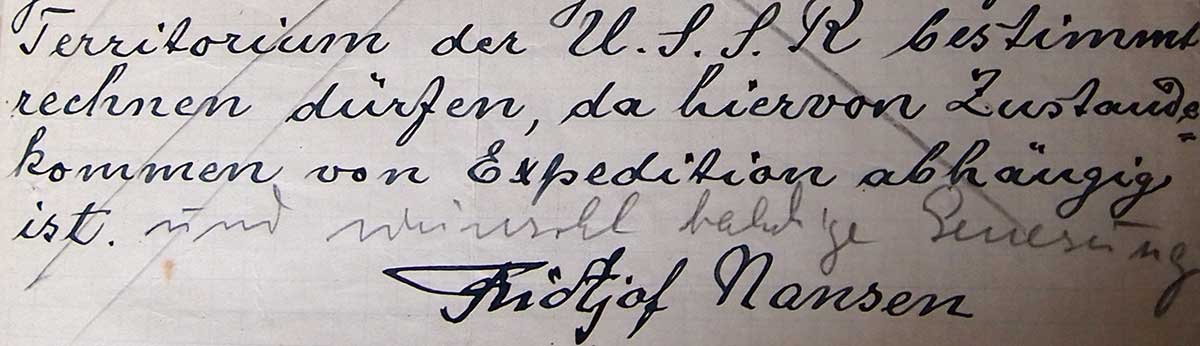 Territorium der U.S.S.R bestimmt
rechnen dürfen, da hiervon Zustande=
kommen von Expedition abhängig
ist. und wünscht baldige Genesung
Fridtjof Nansen